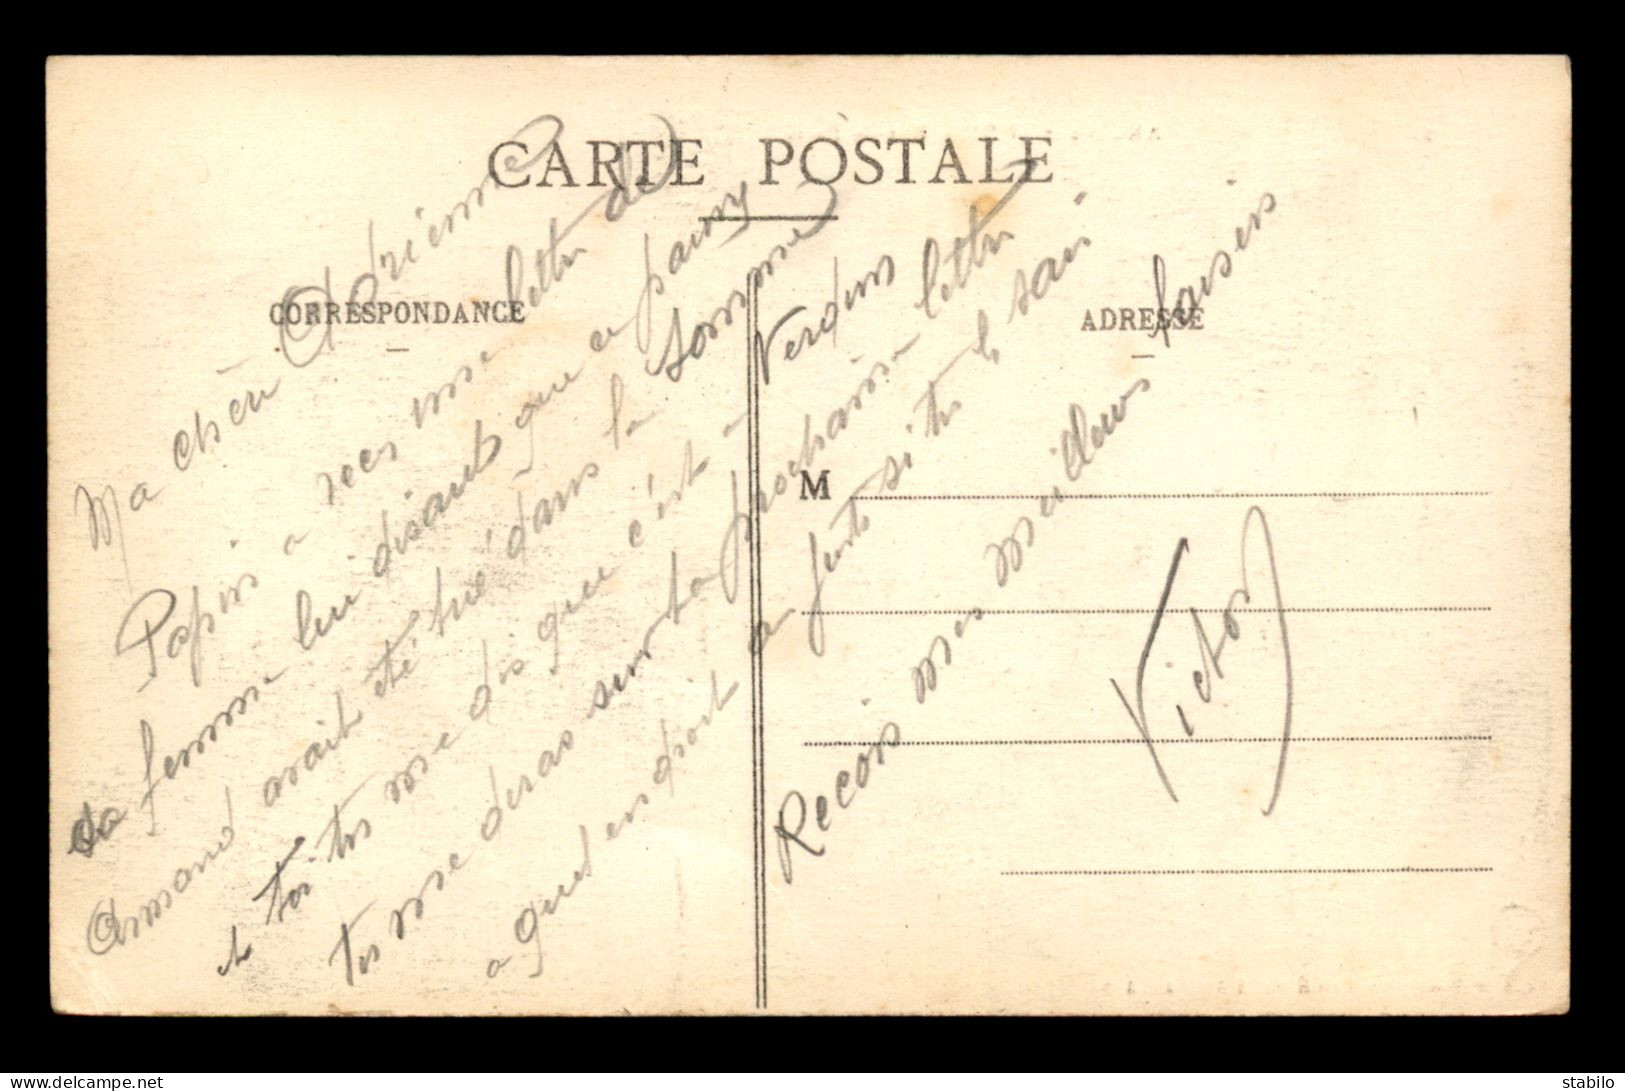 CARTE POSTALE
CORRESPONDANCE
ADRESSE
M
Ma cher Adrienne
Papin a recu une lettre de
sa femme lui disant que ce pauvre
Armand avait été tué dans la Somme
et toi tu me dis que c'est a Verdun
tu me diras sur ta prochaine lettre
a quel endroit au juste si tu le sai
Recois mes meilleurs baisers
Victor
stabilo